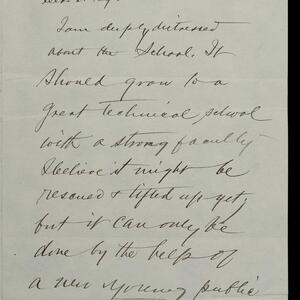 I am deeply distressed
about the School. It
should grow to a
great technical school
with a strong faculty
I believe it might be
rescued & lifted up yet,
but it can only be
done by the help of
a new young public